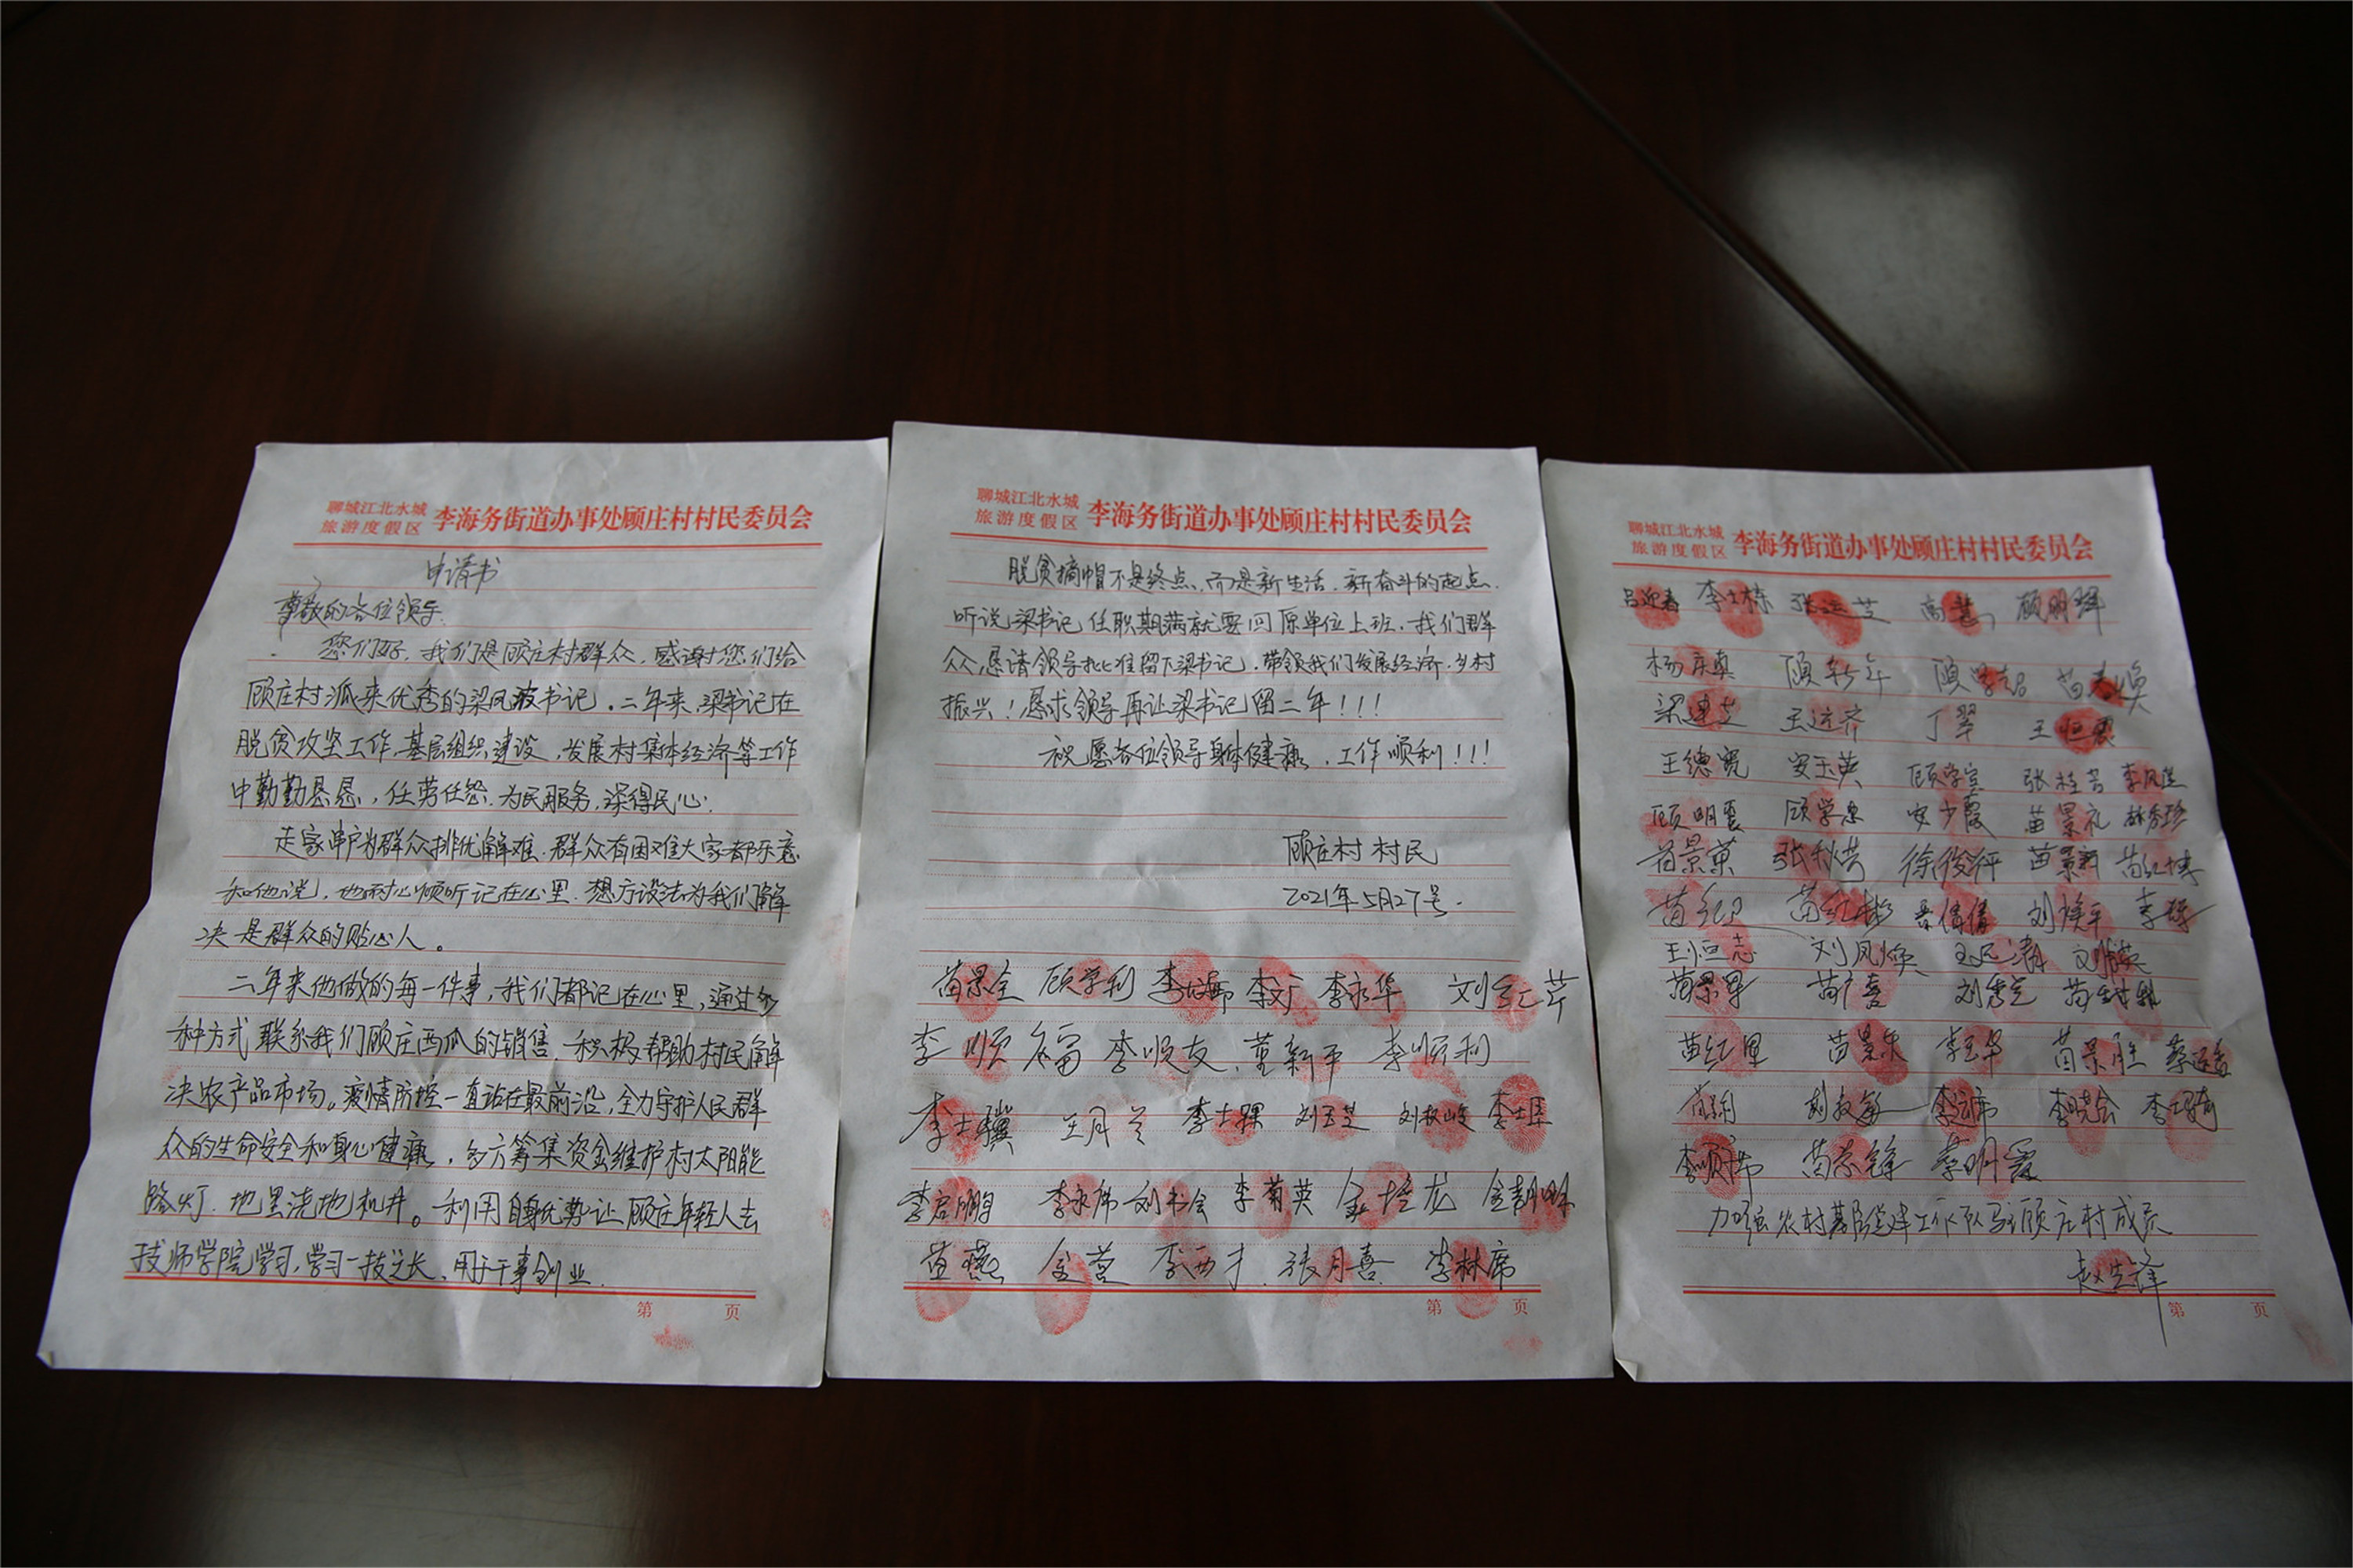 聊城江北水城
旅游度假区 李海务街道办事处顾庄村村民委员会
申请书
尊敬的各位领导
您们好,我们是顾庄村群众,感谢您们给
顾庄村派来优秀的梁凤波书记。二年来,梁书记在
脱贫攻坚工作,基层组织建设,发展村集体经济等工作
中勤勤恳恳,任劳任怨,为民服务,深得民心.
走家串户为群众排忧解难,群众有困难大家都乐意
和他说,他耐心倾听记在心里,想方设法为我们解
决是群众的贴心人。
二年来他做的每一件事,我们都记在心里,通过多
种方式联系我们顾庄西瓜的销售,积极帮助村民解
决农产品市场。疫情防控一直站在最前沿,全力守护人民群
众的生命安全和身心健康,多方筹集资金维护村太阳能
路灯、地里浇地机井。利用自身优势让顾庄年轻人去
技师学院学习,学习一技之长,用于干事创业.
第 页
聊城江北水城
旅游度假区 李海务街道办事处顾庄村村民委员会
脱贫摘帽不是终点,而是新生活,新奋斗的起点.
听说梁书记任职期满就要回原单位上班,我们群
众恳请领导批准留下梁书记,带领我们发展经济,乡村
振兴!恳求领导再让梁书记留二年!!!
祝愿各位领导身体健康,工作顺利!!!
顾庄村村民
2021年5月27号.
苗景全 顾学利 李文广 李永华 刘红芹
李顺福 李顺友 董新平 李顺利
李士骥 王月兰 李士棵 刘玉芝 刘敬岐 李士臣
李启鹏 李永席 刘书会 李菊英 金培龙
苗燕 金营 李西才 张月喜 李林席
第 页
聊城江北水城
旅游度假区 李海务街道办事处顾庄村村民委员会
吕迎春 李士栋 张运芝 高慧 顾明辉
杨庆真 顾新年 顾学超
梁建芝 王运齐 丁翠 王恒霞
王德宽 安玉英 顾学宣 张桂芳 李凤莲
顾明霞 顾学忠 安少霞 苗景礼 林秀珍
苗景英 张秋芳 徐俊评 苗景新 苗红博
苗红卫 苗红彬 吴倩倩 刘焕平
王恒志 刘凤焕
刘秀芝
苗红军 苗景乐 李玉华 苗景胜
李运席 李晓会 李士琦
李顺席 苗景锋 蔡明霞
加强农村基层党建工作队驻顾庄村成员
赵先锋
第 页